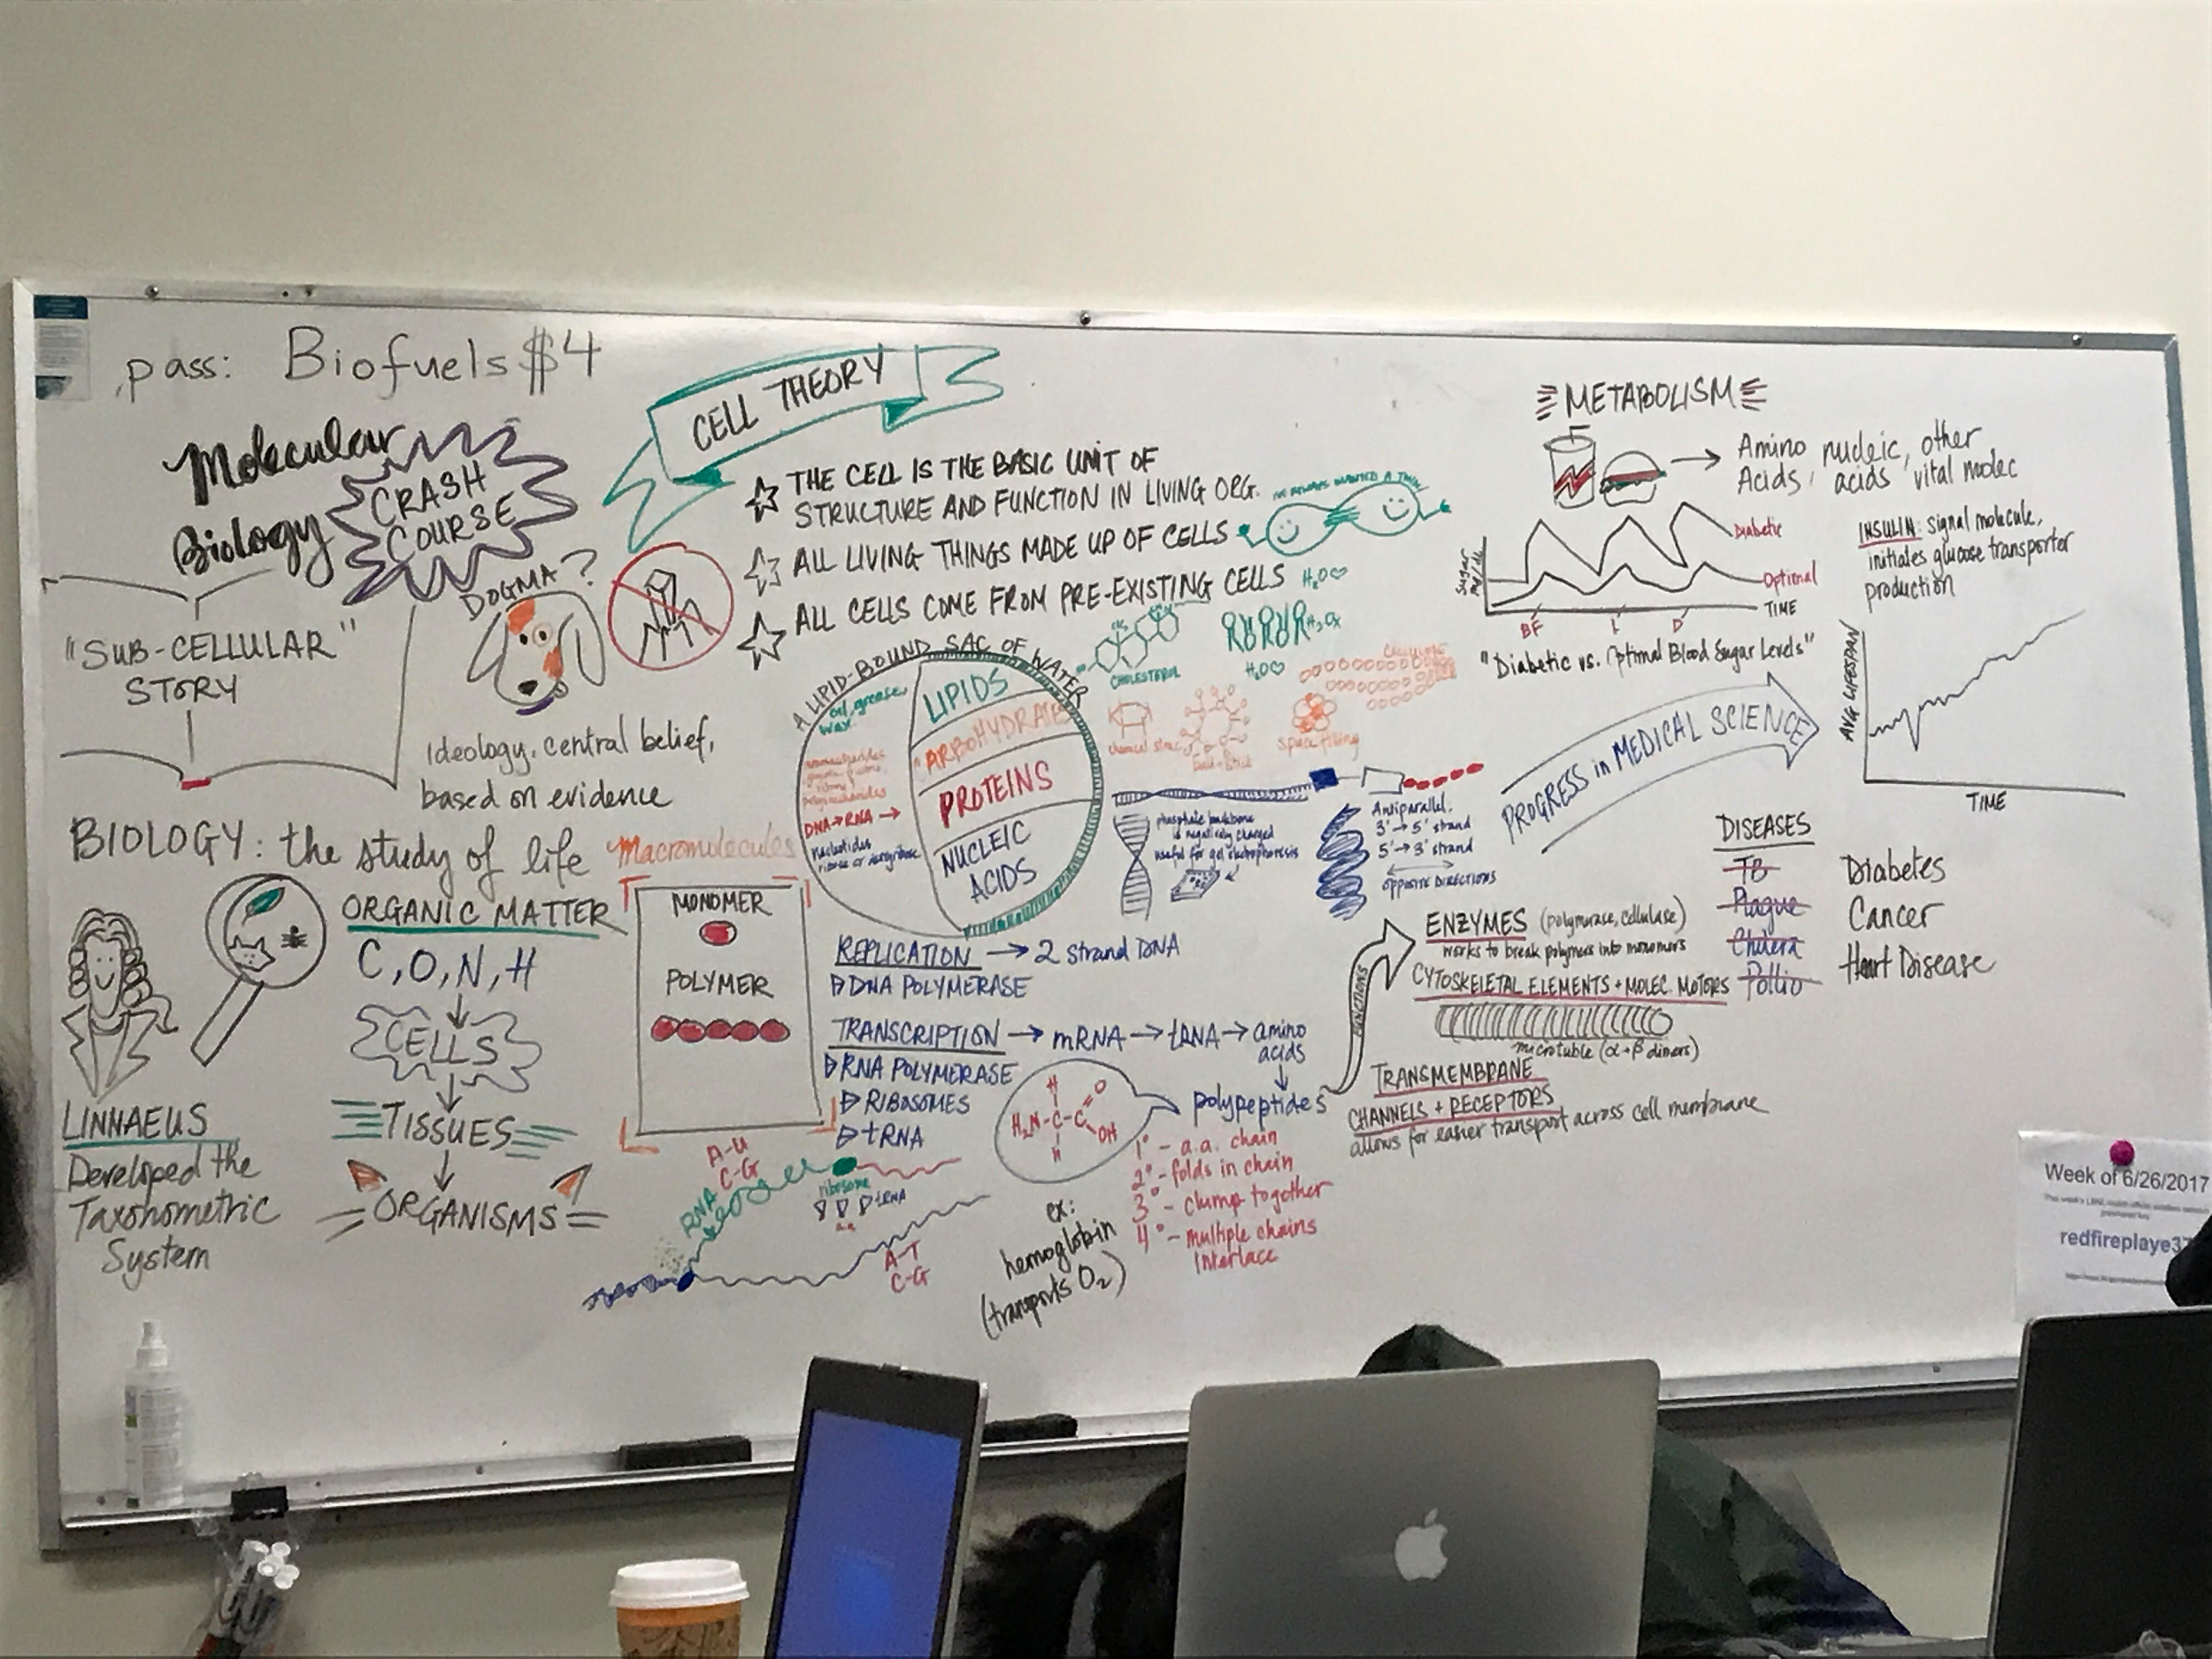 pass: Biofuels$4
Molecular
Biology
CRASH
COURSE
"SUB-CELLULAR"
STORY
DOGMA?
Ideology, central belief,
based on evidence
BIOLOGY: the study of life
LINNAEUS
Developed the
Taxonometric
System
ORGANIC MATTER
C, O, N, H
CELLS
TISSUES
ORGANISMS
Macromolecules
MONOMER
POLYMER
CELL THEORY
THE CELL IS THE BASIC UNIT OF
STRUCTURE AND FUNCTION IN LIVING ORG.
ALL LIVING THINGS MADE UP OF CELLS
ALL CELLS COME FROM PRE-EXISTING CELLS
I'VE ALWAYS WANTED A TWIN
A LIPID-BOUND SAC OF WATER
oil, grease,
wax
polysaccharides
DNA→RNA→
nucleotides
ribose or deoxyribose
LIPIDS
CARBOHYDRATES
PROTEINS
NUCLEIC
ACIDS
CHOLESTEROL
H2O♡
H2O♡
chemical struc
Ball-Stick
space filling
phosphate backbone
is negatively charged
useful for gel electrophoresis
Antiparallel.
3'→5' strand
5'→3' strand
OPPOSITE DIRECTIONS
REPLICATION → 2 strand DNA
DNA POLYMERASE
TRANSCRIPTION → mRNA → tRNA → amino
acids
RNA POLYMERASE
RIBOSOMES
tRNA
polypeptides
H2N-C-C
H
H
O
OH
1° - a.a. chain
2° - folds in chain
3° - clump together
4° - multiple chains
interlace
ex:
hemoglobin
(transports O2)
A-U
C-G
RNA
ribosome
tRNA
a.a
A-T
C-G
FUNCTIONS
ENZYMES (polymerase, cellulase)
works to break polymers into monomers
CYTOSKELETAL ELEMENTS + MOLEC. MOTORS
microtuble (α+β dimers)
TRANSMEMBRANE
CHANNELS + RECEPTORS
allows for easier transport across cell membrane
METABOLISM
Amino nucleic, other
Acids, acids vital molec
Sugar
mg/dL
Diabetic
Optimal
TIME
BF L D
"Diabetic vs. Optimal Blood Sugar Levels"
INSULIN: signal molecule,
initiates glucose transporter
production
PROGRESS in MEDICAL SCIENCE
AVG LIFESPAN
TIME
DISEASES
TB
Plague
Cholera
Pollio
Diabetes
Cancer
Heart Disease
Week of 6/26/2017
redfireplaye37